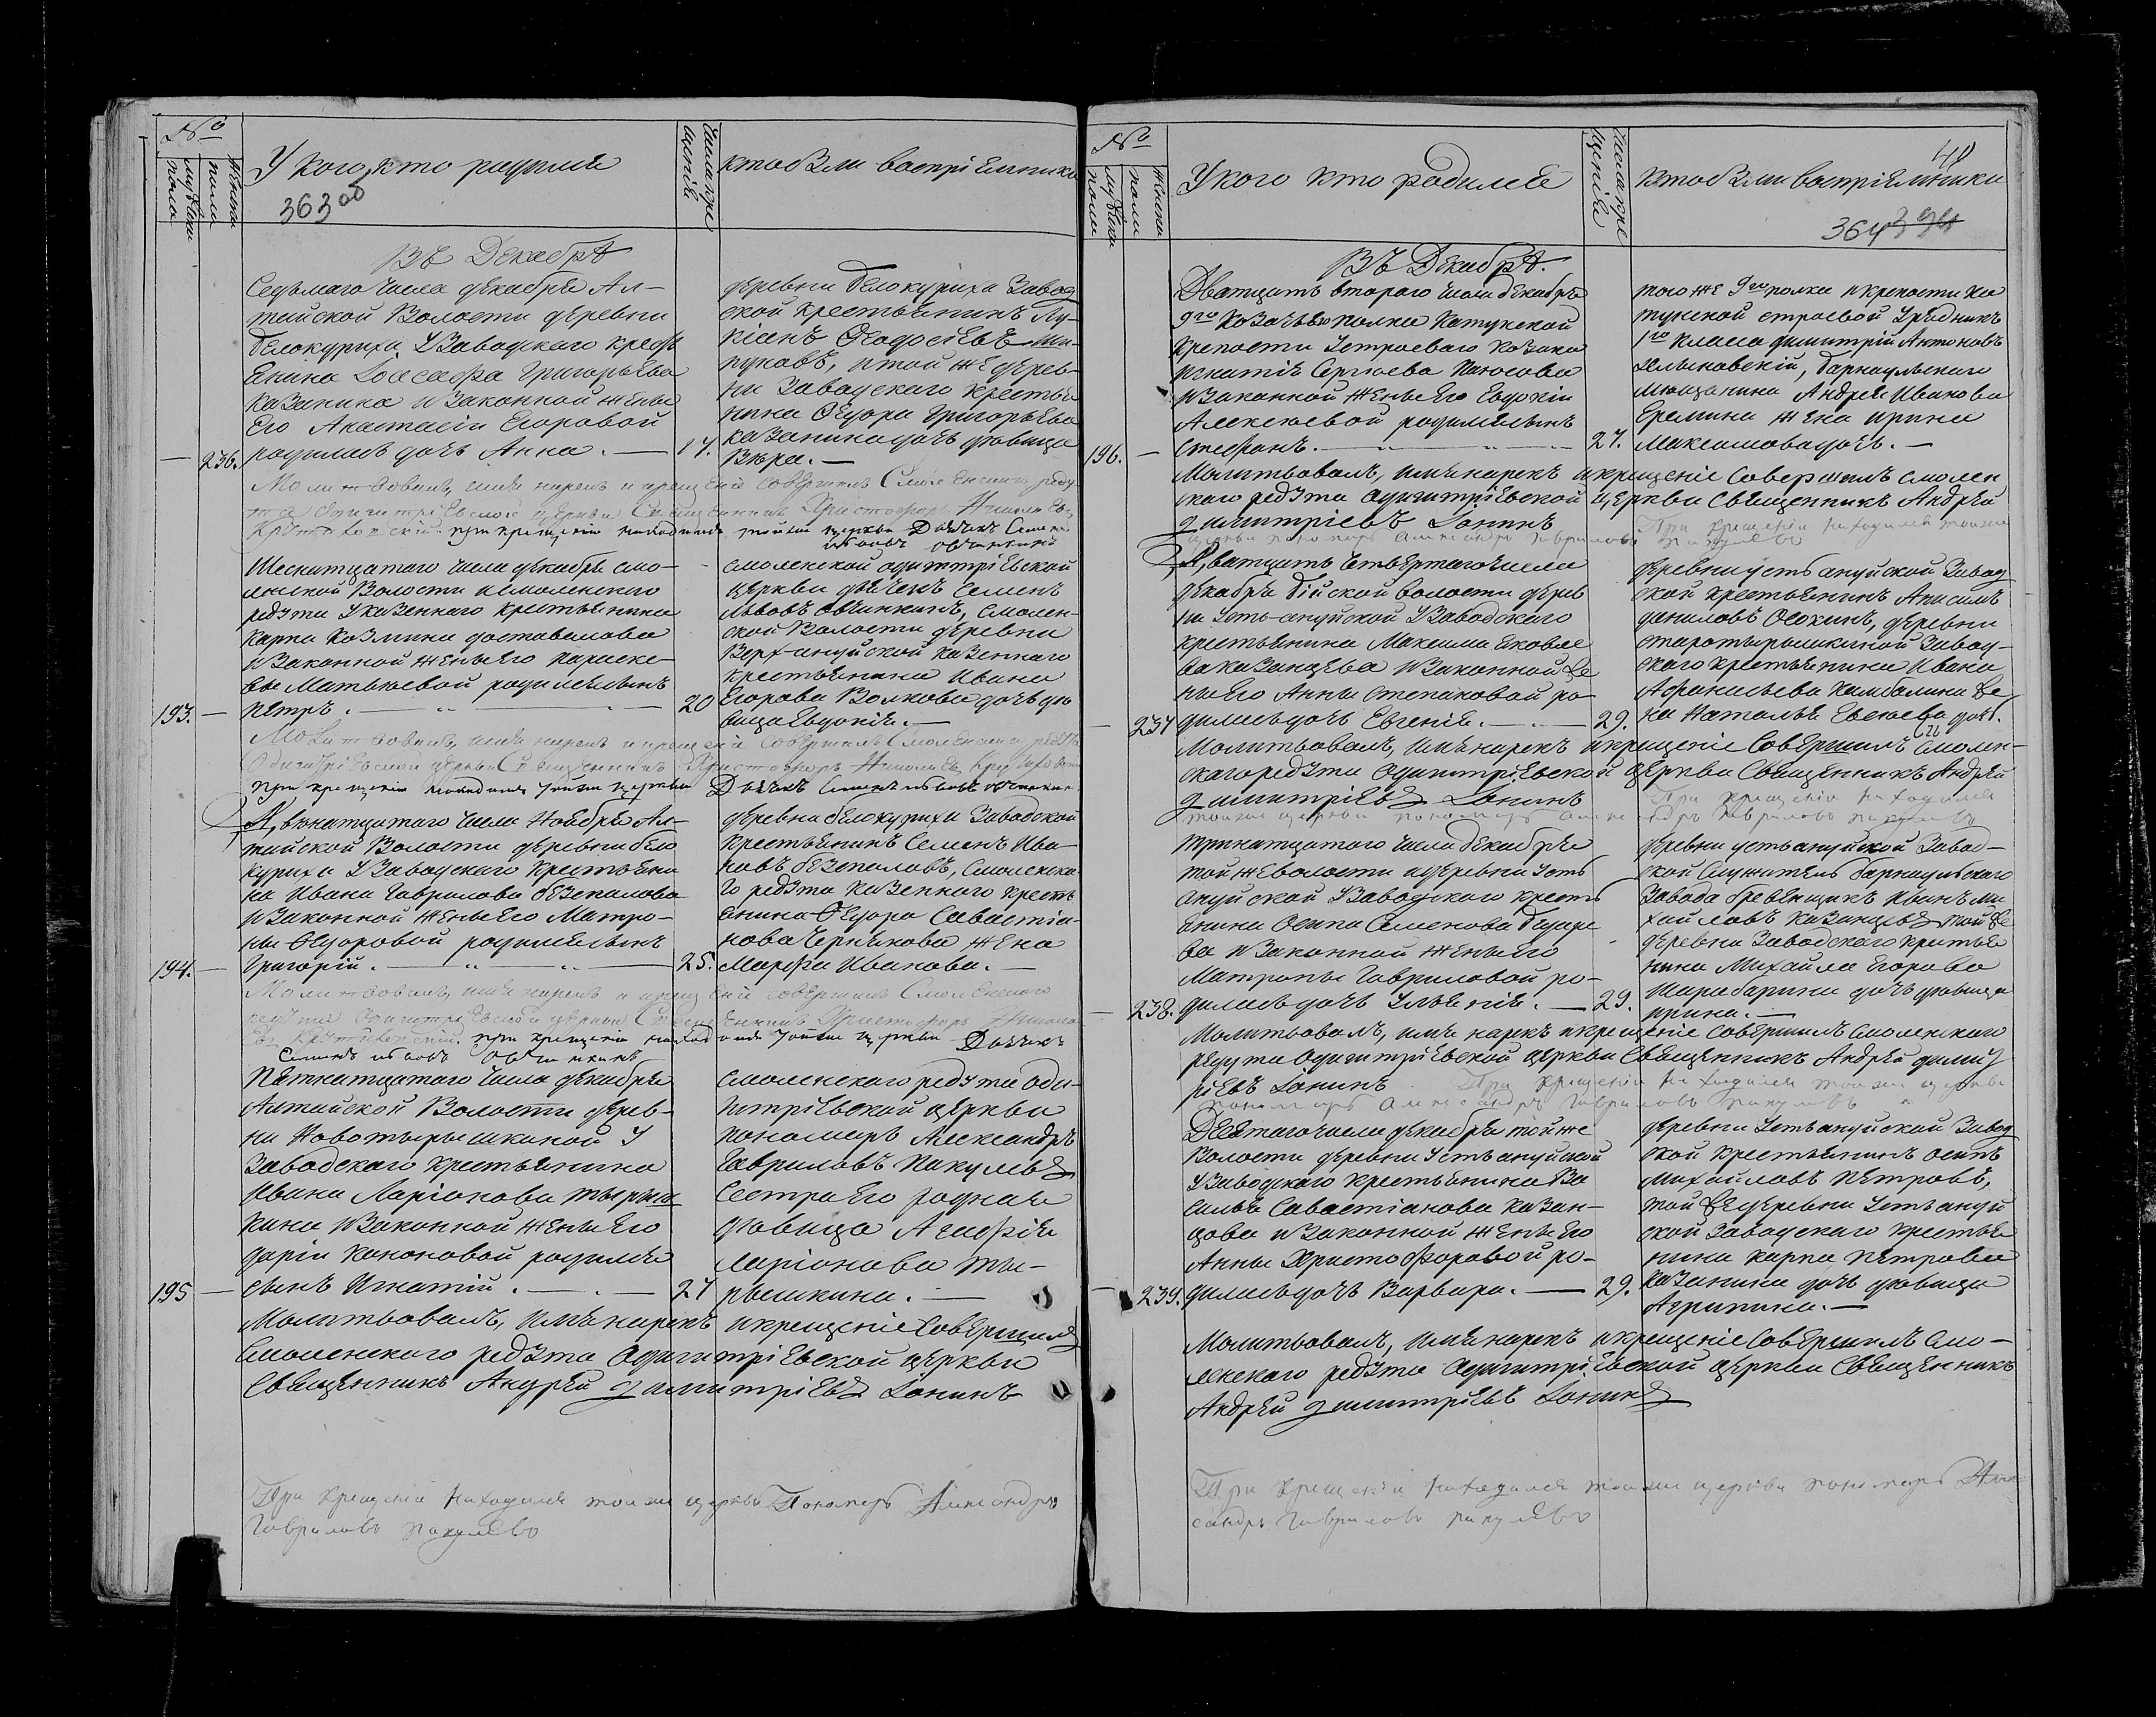 №
мужеска пола
женска пола
У кого, кто родился
363 об
Числа крещенія
кто были воспріемники
Въ Декабрѣ
Седьмаго числа декабря Ал-
тайской Волости деревни
Белокурихи Узаводскаго крестъ
янина Іоасафа Григорьева
Казанина изаконной жены
Его Анастасіи Егоровой
236. родилась дочь Анна. 17.
деревни белокурихи Завод
ской крестьянинъ Лу-
кіанъ Феодосіевъ Ши-
пуновъ, итой же дерев-
ни Заводскаго крестья
нина Федора Григорьева
казанина дочь девица
Вѣра.
Молитвовалъ, имя нарекъ и крещеніе совершилъ Смоленскаго реду
та Одигитріевской церкви Священникъ Христофоръ Николаев
при крещеніи находился тойже церкви Дьячекъ Семенъ
Львовъ Овчинкинъ
Шеснатцатаго числа декабря смо-
ленской Волости исмоленскаго
редута Указеннаго крестьянина
Карпа Козмина доставалова
изаконной жены его параске-
вы Матвеевой родился сынъ
193. петръ. 20
смоленской одигитріевской
церкви дьячекъ Семенъ
Львовъ Овчинкинъ, Смолен-
ской Волости деревни
Верх-ануйской казеннаго
крестьянина Ивана
Егорова Волкова дочь де
вица Евдокія.
Молитвовалъ, имя нарекъ и крещеніе совершилъ Смоленскаго редута
Одигитріевской церкви Священникъ Христофоръ Николаев
при крещеніи находился тойже церкви Дьячекъ Семенъ Львовъ Овчинкинъ
Двенатцатаго числа Ноября Ал-
тайской Волости деревни бело
курихи Узаводскаго крестьяни
на Ивана Гаврилова безпалова
изаконной жены его Матро-
ны Федоровой родился сынъ
194. Григорій. 25.
деревни белокурихи Заводской
крестьянинъ Семенъ Ива-
новъ безпаловъ, Смоленска-
го редута казеннаго кресть
янина Федора Савастіа-
нова Чернакова жена
Марфа Иванова.
Молитвовалъ, имя нарекъ и крещеніе совершилъ Смоленскаго
редута Одигитріевской церкви Священникъ Христофоръ Никола
при крещеніи находился тойже церкви Дьячекъ
Семенъ Львовъ Овчинкинъ
Пятнатцатаго числа декабря
Алтайской Волости дерев-
ни Новотырышкиной У
Заводскаго крестьянина
Ивана Ларіонова тырыш
кина изаконной жены его
дарьи Кононовой родился
195 сынъ Игнатій. 27
Смоленскаго редута оди-
гитріевской церкви
пономарь Александръ
Гавриловъ Пакулевъ
Сестра его родная
девица Агафія
Ларіонова ты-
рышкина.
Молитвовалъ, имя нарекъ икрещеніе совершилъ
Смоленскаго редута Одигитріевской церкви
Священникъ Андрей димитріевъ Іонинъ
При крещеніи находился тойже церкви Пономарь Александръ
Гавриловъ пакулевъ
№
мужеска пола
женска пола
У кого кто родился
Числа крещенія
кто были воспріемники
40
364
Въ Декабрѣ.
Дватцать втораго числа декабря
9го Козачьяго полка Катунской
крепости Устроеваго Козака
игнатія Сергѣева
изаконной жены его Евдокіи
Алексеевой родился сынъ
196. стефанъ. 27.
того же 9го полка икрепости ка
тунской строевой Урядникъ
1го класса димитрій Антоновъ
барнаульскаго
мещанина Андрея Иванова
Еремина жена ирина
Максимова дочь.
Молитвовалъ, имя нарекъ икрещеніе совершилъ смолен
скаго редута одигитріевской церкви Священникъ Андрей
димитріевъ Іонинъ При крещеніи находился тойже
церкви пономарь Александръ Гавриловъ пакулевъ
Дватцать четвертаго числа
декабря бійской волости дерев
ни Усть-ануйской Узаводскаго
крестьянина Максима Яковле
ва казанцева изаконной же
ны его Анны Степановой ро-
237 дилась дочь Евгенія. 29.
деревни усть ануйской Завод
ской крестьянинъ Анисимъ
даниловъ Осокинъ, деревни
старотырышкиной Завод-
скаго крестьянина Ивана
Афанасьева Камбалина же
на Наталья Евсеева дочь.
Молитвовалъ, имя нарекъ икрещеніе совершилъ Смолен-
скаго редута Одигитріевской церкви Священникъ Андрей
димитріевъ Іонинъ При крещеніи находился
тойже церкви пономарь Александръ Гавриловъ пакулевъ
тринатцатаго числа декабря
той же волости идеревни Усть
ануйской Узаводскаго кресть
янина Осипа Семенова
ва изаконной жены его
Матроны Гавриловой ро-
238. дилась дочь Ульянія. 29.
деревни усть ануйской Завод-
ской Служитель барнаульскаго
Завода Иванъ Ми
хайловъ казанцевъ той же
деревни Заводскаго крестья
нина Михайла Егорова
Шарабарина дочь девица
ирина.
Молитвовалъ, имя нарекъ икрещеніе совершилъ Смоленскаго
редута одигитріевской церкви Священникъ Андрей димит
ріевъ Іонинъ При крещеніи находился тойже церкви
пономарь Александръ Гавриловъ пакулевъ
Девятаго числа декабря той же
Волости деревни Усть ануйской
Узаводскаго крестьянина Ва
силья Савастіанова Казан-
цова изаконной жены его
Анны Христофоровой ро-
239. дилась дочь Варвара. 29.
деревни Усть ануйской Завод
ской крестьянинъ осипъ
Михайловъ петровъ,
той же деревни Усть ануй
ской Заводскаго крестья
нина карпа петрова
казанина дочь девица
Агрипина.
Молитвовалъ, имя нарекъ икрещеніе совершилъ Смо-
ленскаго редута одигитріевской церкви Священникъ
Андрей димитріевъ Іонинъ
При крещеніи находился тойже церкви пономарь Алек
сандръ Гавриловъ пакулевъ